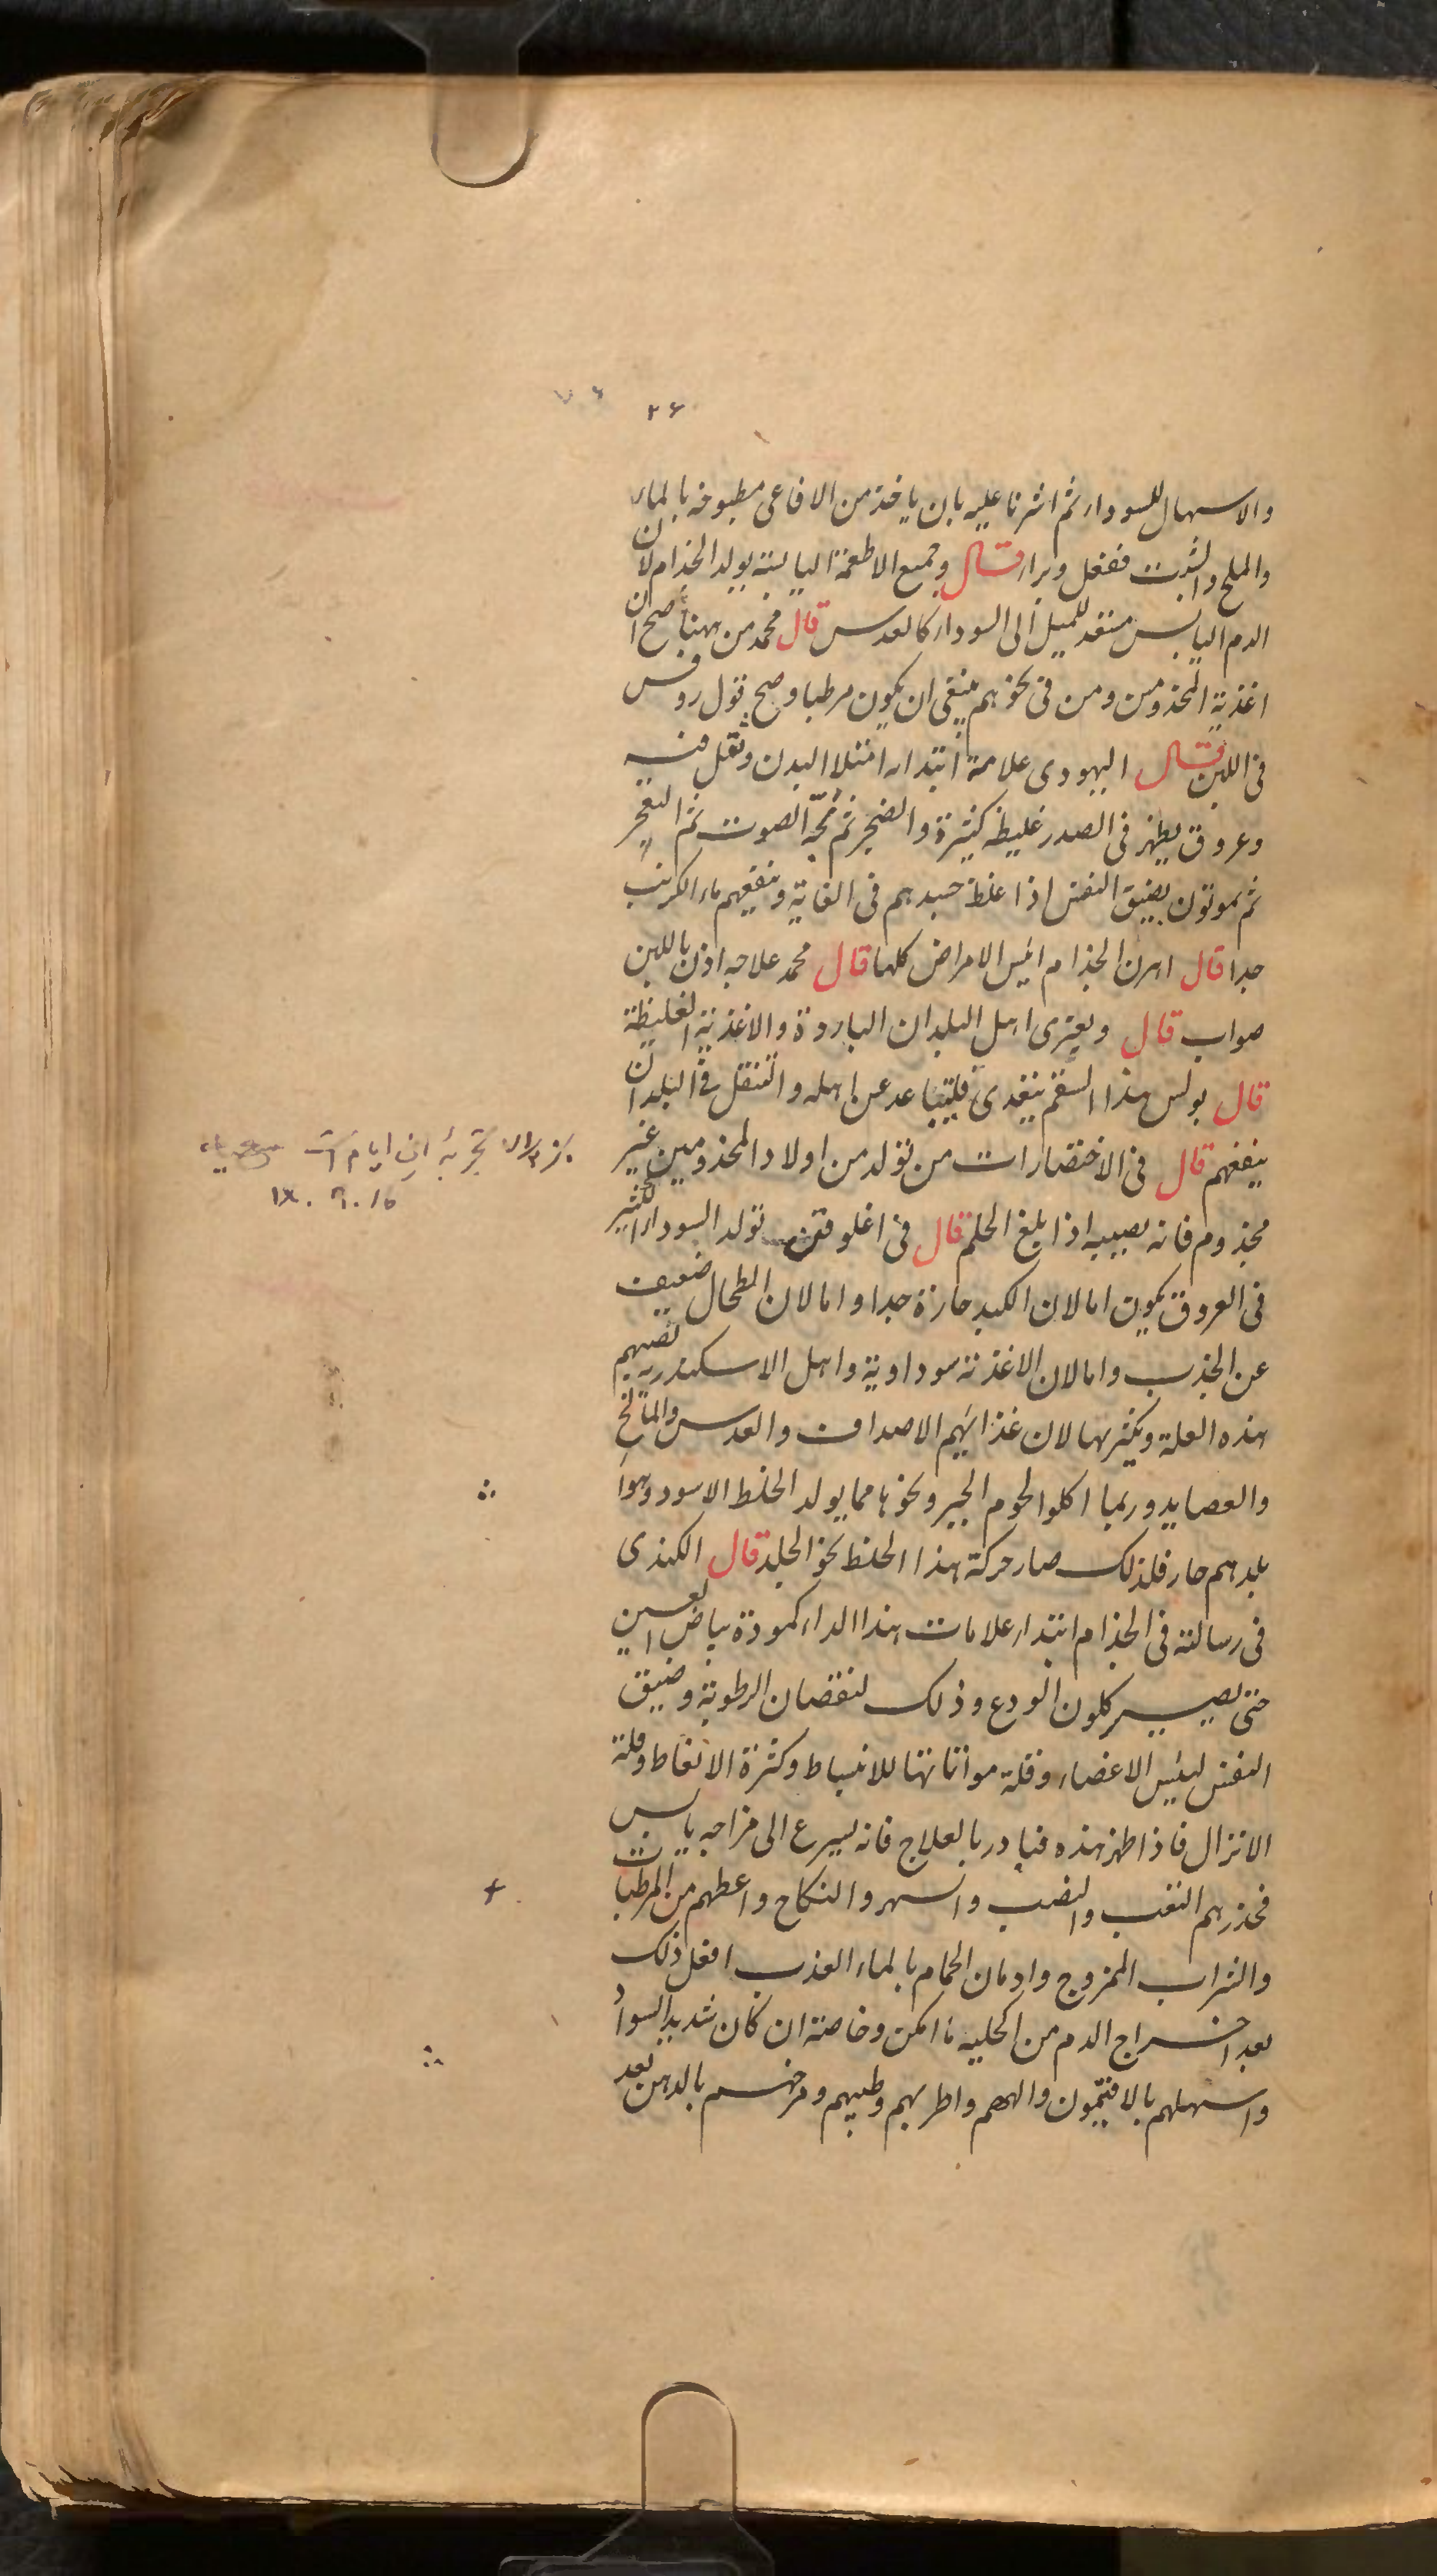 ۲۶
والاسهال للسوداء ثم اشرنا عليه بان ياخذ من الافاعى مطبوخه بالماء
والملح والشبت ففعل وبراء قال وجميع الاطعمة اليابسة يولد الجذام لان
الدم اليابس مستعد للميل الى السوداء كالعدس قال محمد من ههنا صح ان
اغذية المجذومين ومن فى نحوهم ينبغى ان يكون مرطبا وصح قول روفس
فى اللبن قال اليهودى علامة ابتداء امتلا البدن وثقل فيه
وعروق يظهر فى الصدر غليظه كثيرة والضجر ثم بحّة الصوت ثم
ثم يموتون بضيق النفس اذا غلظ جسدهم فى الغاية وينفعهم ماء الكرنب
جدا قال اهرن الجذام ايبس الامراض كلها قال محمد علاجه اذن باللبن
صواب قال ويعترى اهل البلدان الباردة والاغذية الغليظة
قال بولس هذا السقم يتعدى فليتباعد عن اهله والتنقل فى البلدان
ينفعهم قال فى الاختصارات من تولد من اولاد المجذومين غير
مجذوم فانه يصيبه اذا بلغ الحلم قال فى اغلوقن تولد السوداء الكثير
فى العروق يكون اما لان الكبد حارة جدا واما لان الطحال ضعيف
عن الجذب واما لان الاغذية سوداوية واهل الاسكندرية تصيبهم
هذه العلة ويكثر بها لان غذائهم الاصداف والعدس والمالح
والعصايد وربما اكلوا لحوم الحمير ونحوها مما يولد الخلط الاسود وهوا
بلدهم حار فلذلك صار حركة هذا الخلط نحو الجلد قال الكندى
فى رسالته فى الجذام ابتداء علامات هذا الداء كمودة بياض العين
حتى يصير كلون الودع وذلك لنقصان الرطوبة وضيق
النفس ليبس الاعضاء وقلة مواتاتها للانبساط وكثرة الانعاظ وقلة
الانزال فاذا ظهر هذه فبادر بالعلاج فانه يسرع الى مزاجه يابس
فحذرهم التعب والنصب والسهر والنكاح واعطهم من المرطبات
والشراب الممزوج وادمان الحمام بالماء العذب افعل ذلك
بعد اخراج الدم من الحليه ما امكن وخاصة ان كان شديد السواد
واسهلهم بالافتيمون والههم واطربهم وطيبهم ومرخهم بالدهن بعد